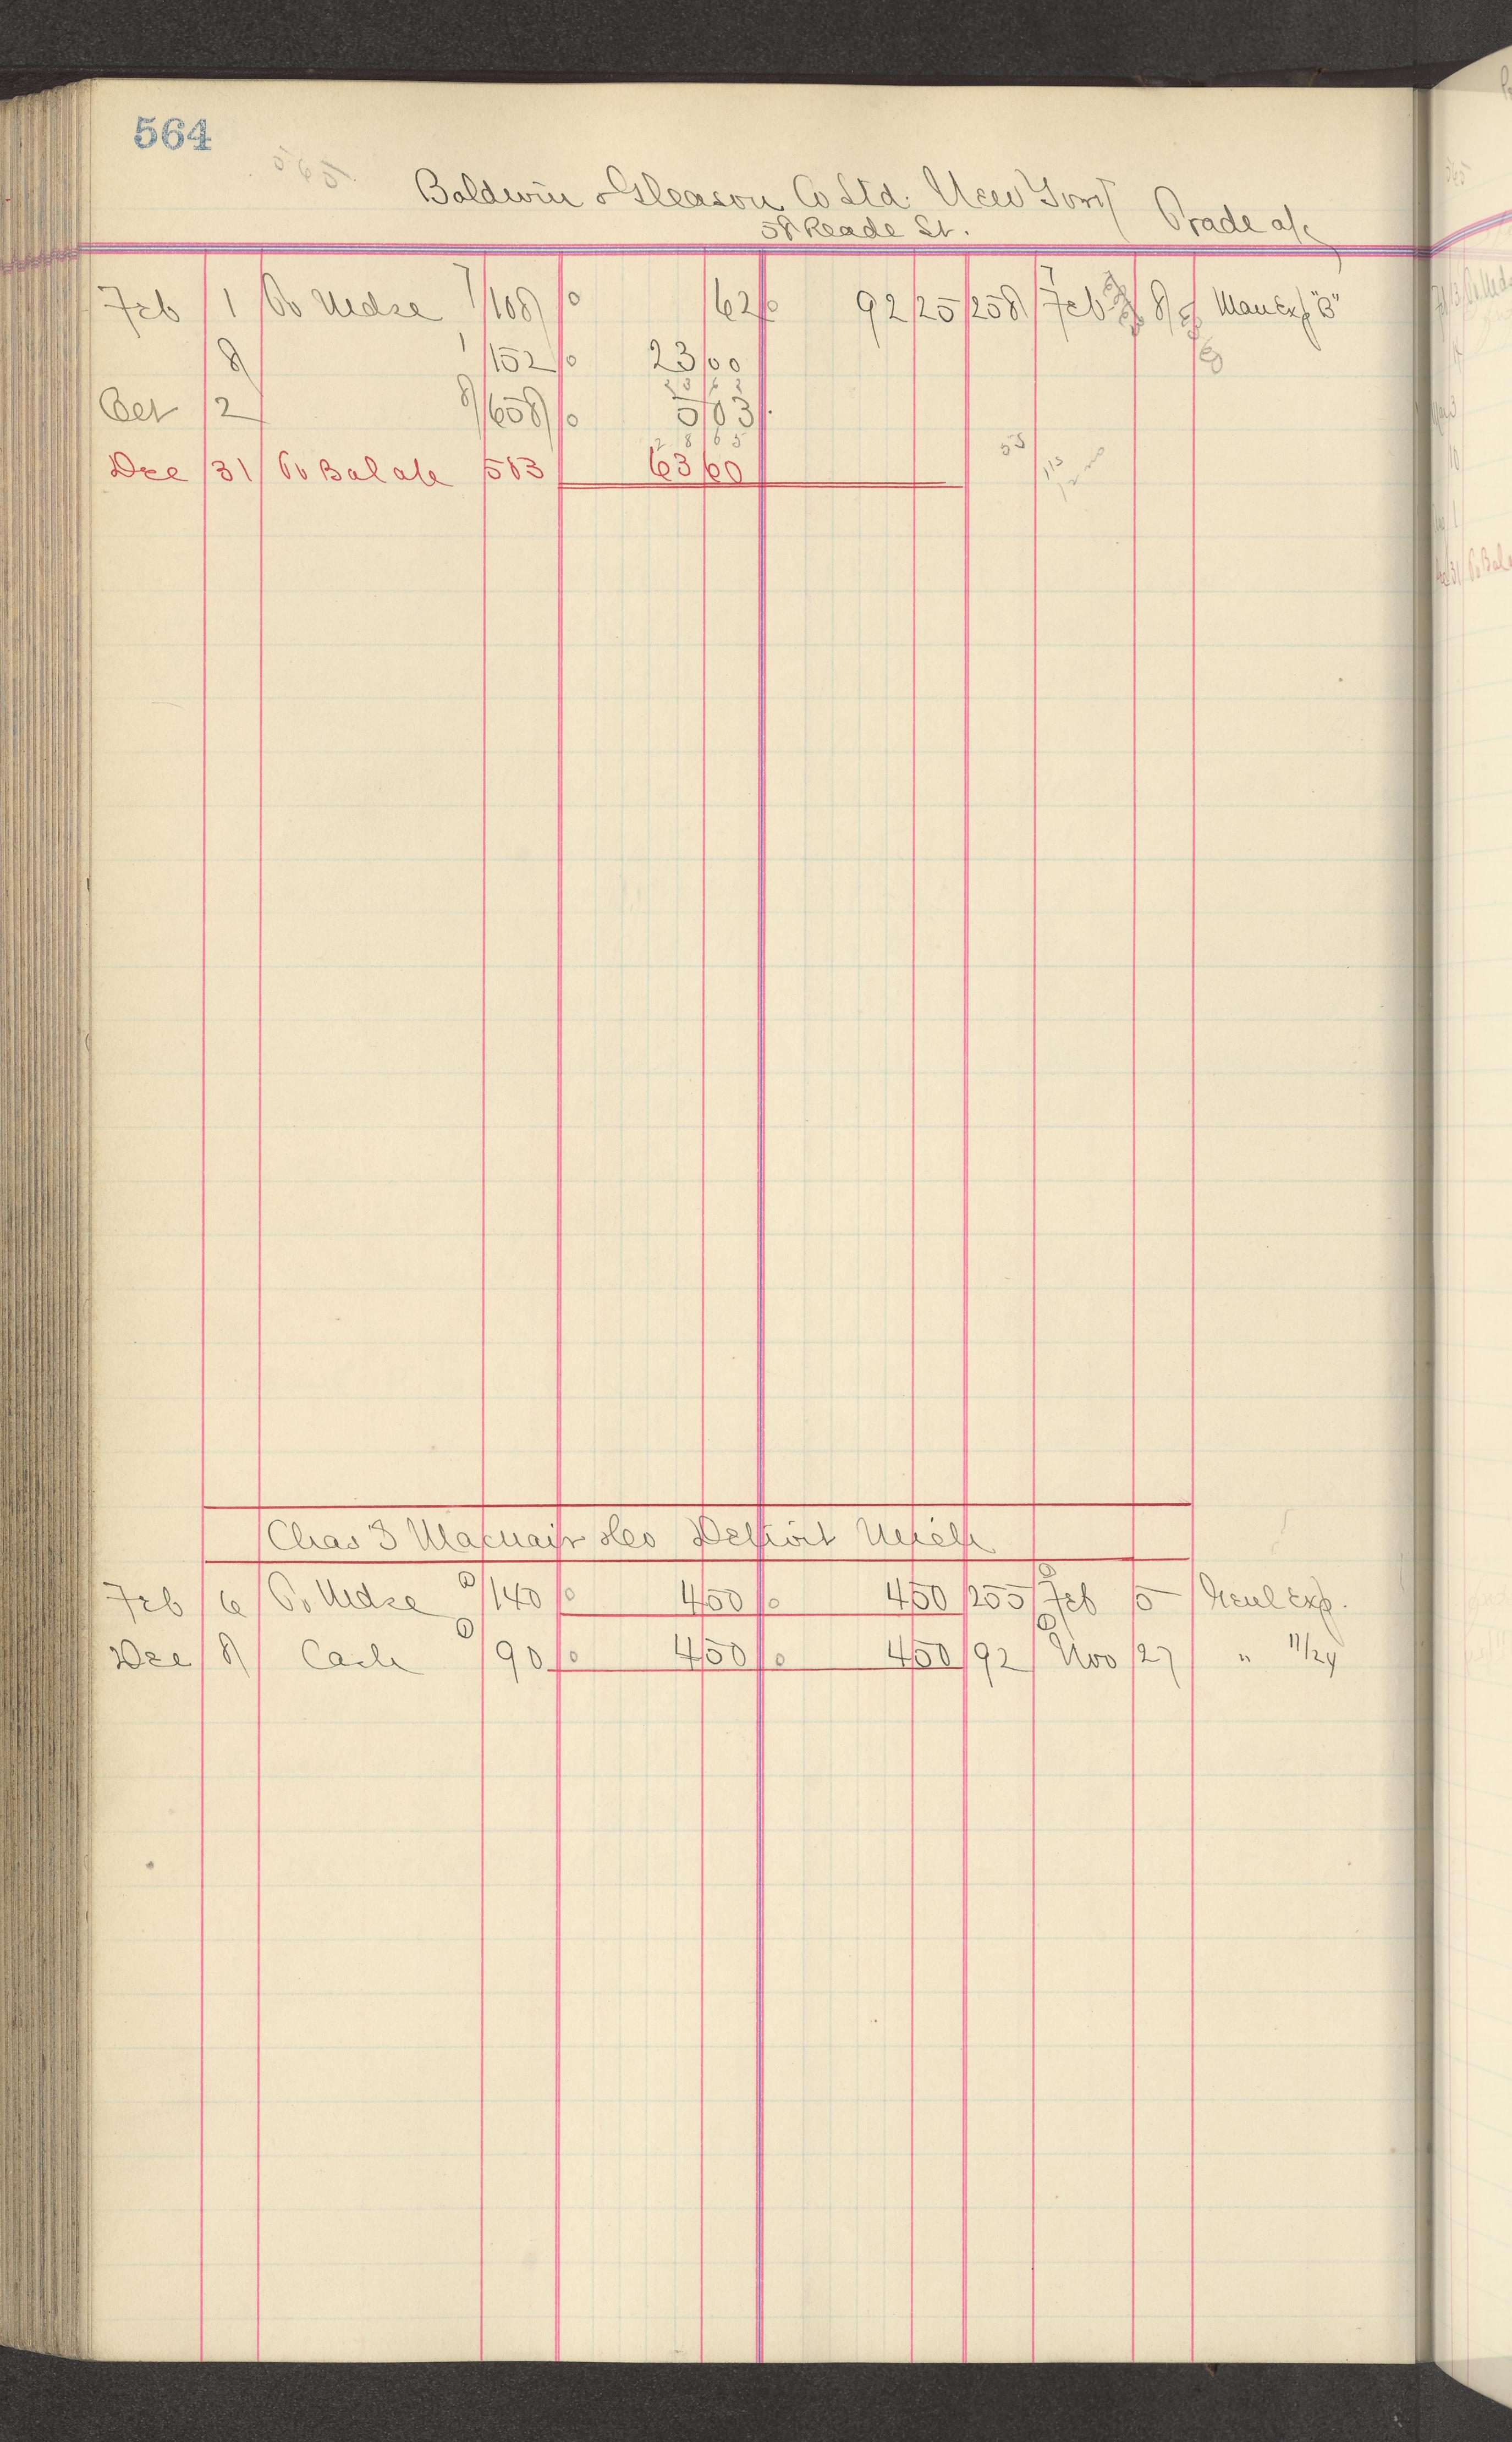 564
Baldwin & Gleason Co Ltd. New York Trade a/c
58 Reade St.
Feb 1 To Mdse 7/108 62 92 25 258 Feb 8 Man Exp "B"
8 1/152 23 00
23 62
Oct 2 8/658 5 03
28 65
Dec 31 To Bal a/c 583 63 60
Chas J Macnair & Co Detroit Mich
Feb 6 To Mdse 140 4 50 4 50 255 Feb 5 Genl Exp.
Dec 8 Cash 90 4 50 4 50 92 Nov 27 " 11/24